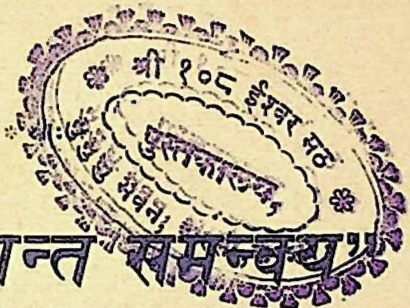 श्री १०८ ईश्वर मठ
पुस्तकालय,
भवन,
न्त समन्वय"